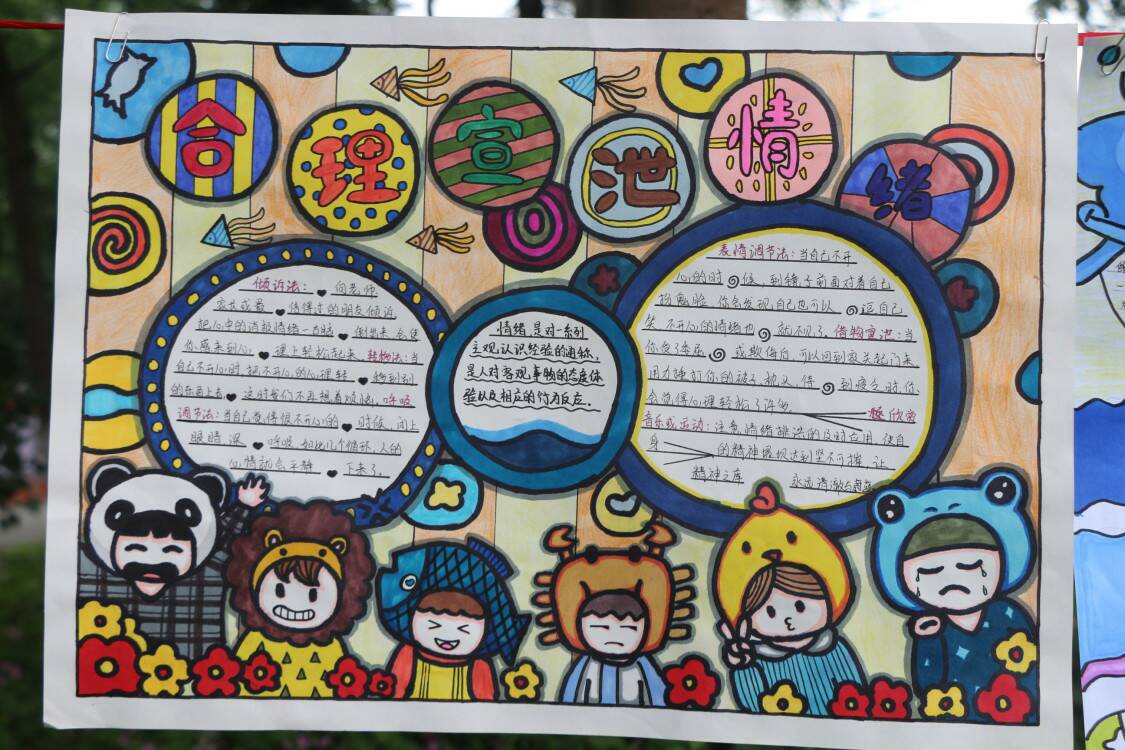 合理宣泄情绪
倾诉法：向老师
家长或最信得过的朋友倾诉
把心中的消极情绪一古脑倒出来，会使
你感来到心理上轻松起来 转物法：当
自己不开心时，把不开心的心理转趋到别
的东西上去 这时我们不再想着烦恼，呼吸
调节法：当自己觉得很不开心的时候，闭上
眼睛深呼吸，如此几个循环，人的
心情动会平静下来了。
情绪，是对一系列
主观认识经验的通称，
是人对客观事物的态度体
验以及相应的行为反应。
表情调节法：当自己不开
心的时候，到镜子前面对着自己
扮鬼脸，你会发现自己也可以逗自己
笑 不开心的情绪也就不见了。借物宣泄：当
你受了委屈或欺侮后，可以回到家关起门来
用力捶打你的被子、枕头，待到疲乏时，你
会觉得心理轻松了许多。欣赏
音乐或运动：注意情绪排泄的及时应用，使自
身的精神堤坝达到坚不可摧，让
精神之库永远清澈